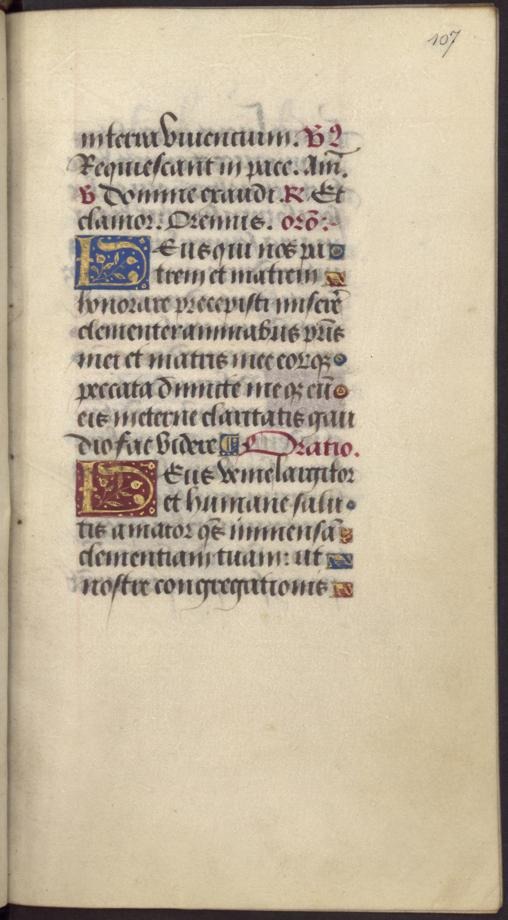 107
in terra viventium. V̶
Requiescant in pace. Am̄.
V̶ Domine exaudi. R̶. Et
clamor. Oremus. orō:
Deus qui nos pa
trem et matrem
honorare precepisti miserē
clementer animabus p̄ris
mei et matris mee eorq̨
peccata dimitte meq̨ cū
eis in eterne claritatis gau
dio fac videre Oratio.
Deus venie largitor
et humane salu
tis amator q̄s immensā
clementiam tuam: ut
nostre congregationis